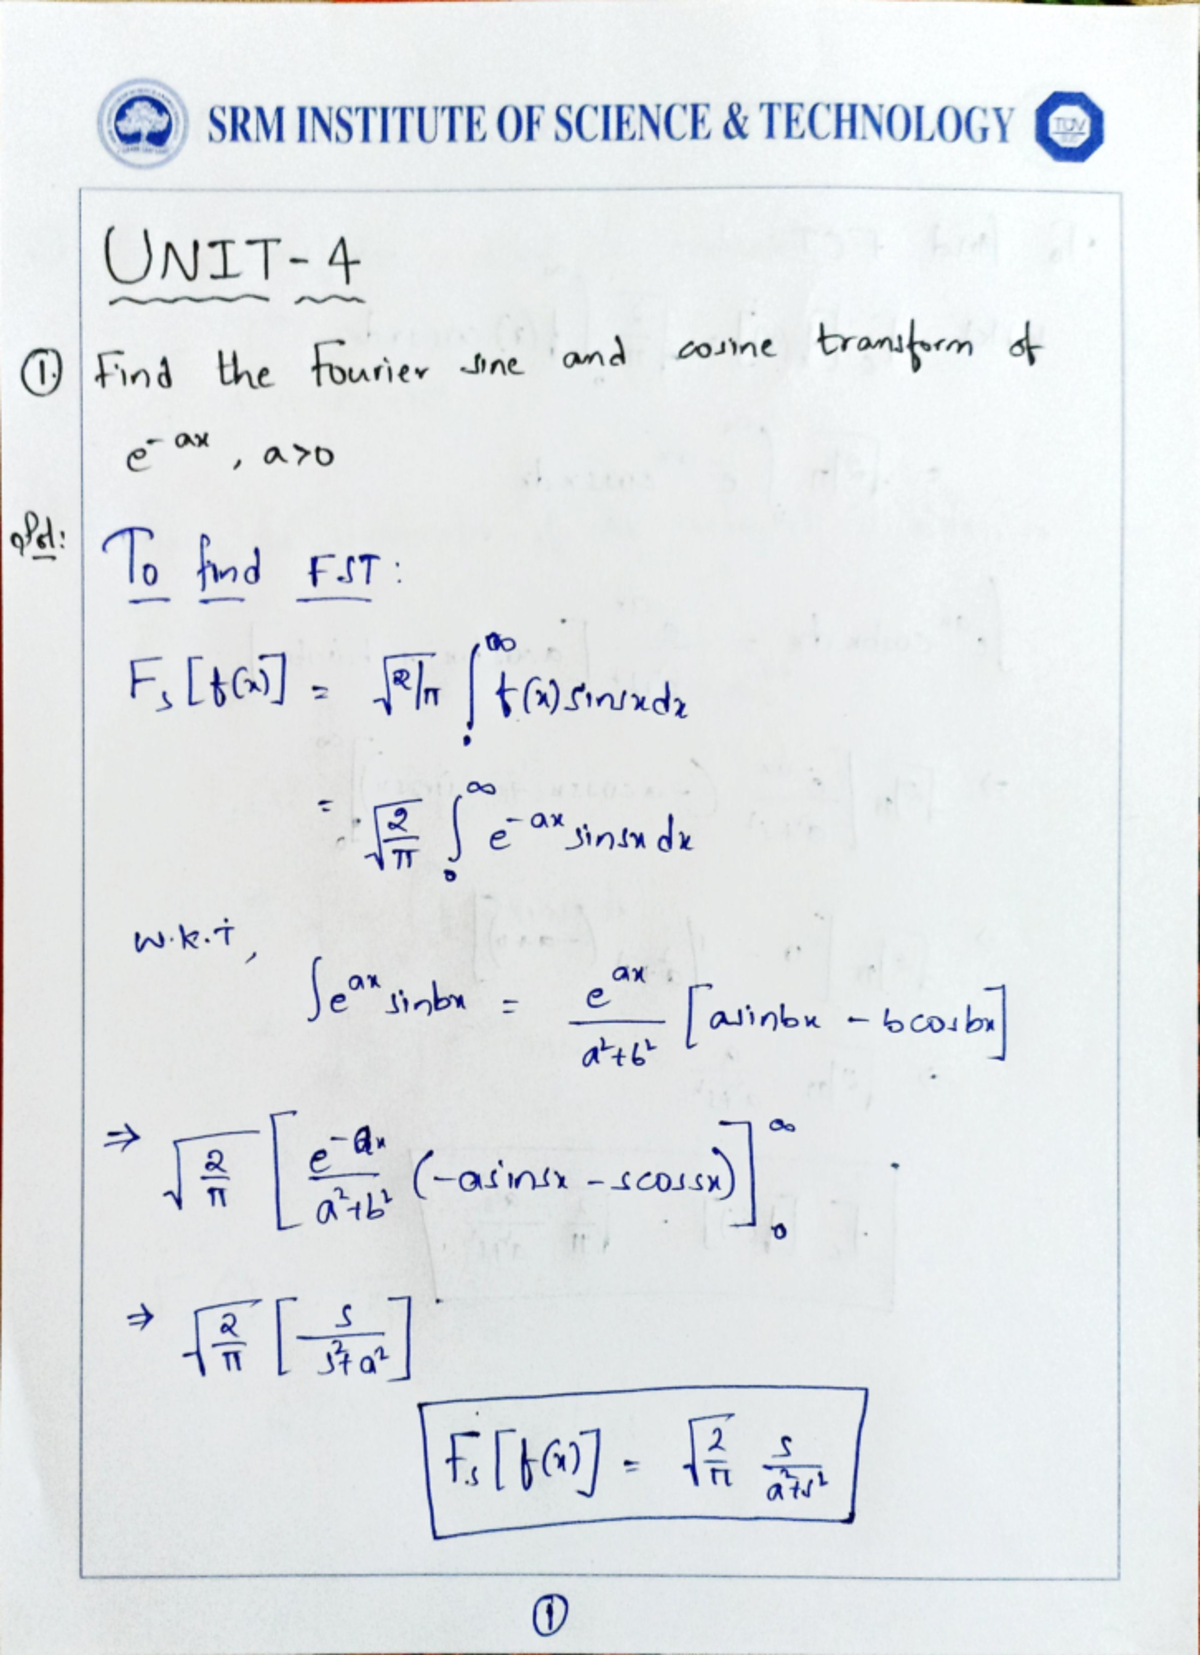 SRM INSTITUTE OF SCIENCE & TECHNOLOGY
TÜV
UNIT-4
① Find the Fourier sine and cosine transform of
e^-ax, a>0
Sol:
To find FST:
Fs[f(x)] = √2/π ∫₀^∞ f(x) sinsx dx
= √2/π ∫₀^∞ e^-ax sinsx dx
w.k.t,
∫e^ax sinbx = e^ax/a²+b² [asinbx - bcosbx]
⇒ √2/π [e^-ax/a²+b² (-asinsx - scossx)]₀^∞
⇒ √2/π [s/s²+a²]
Fs[f(x)] = √2/π s/a²+s²
①